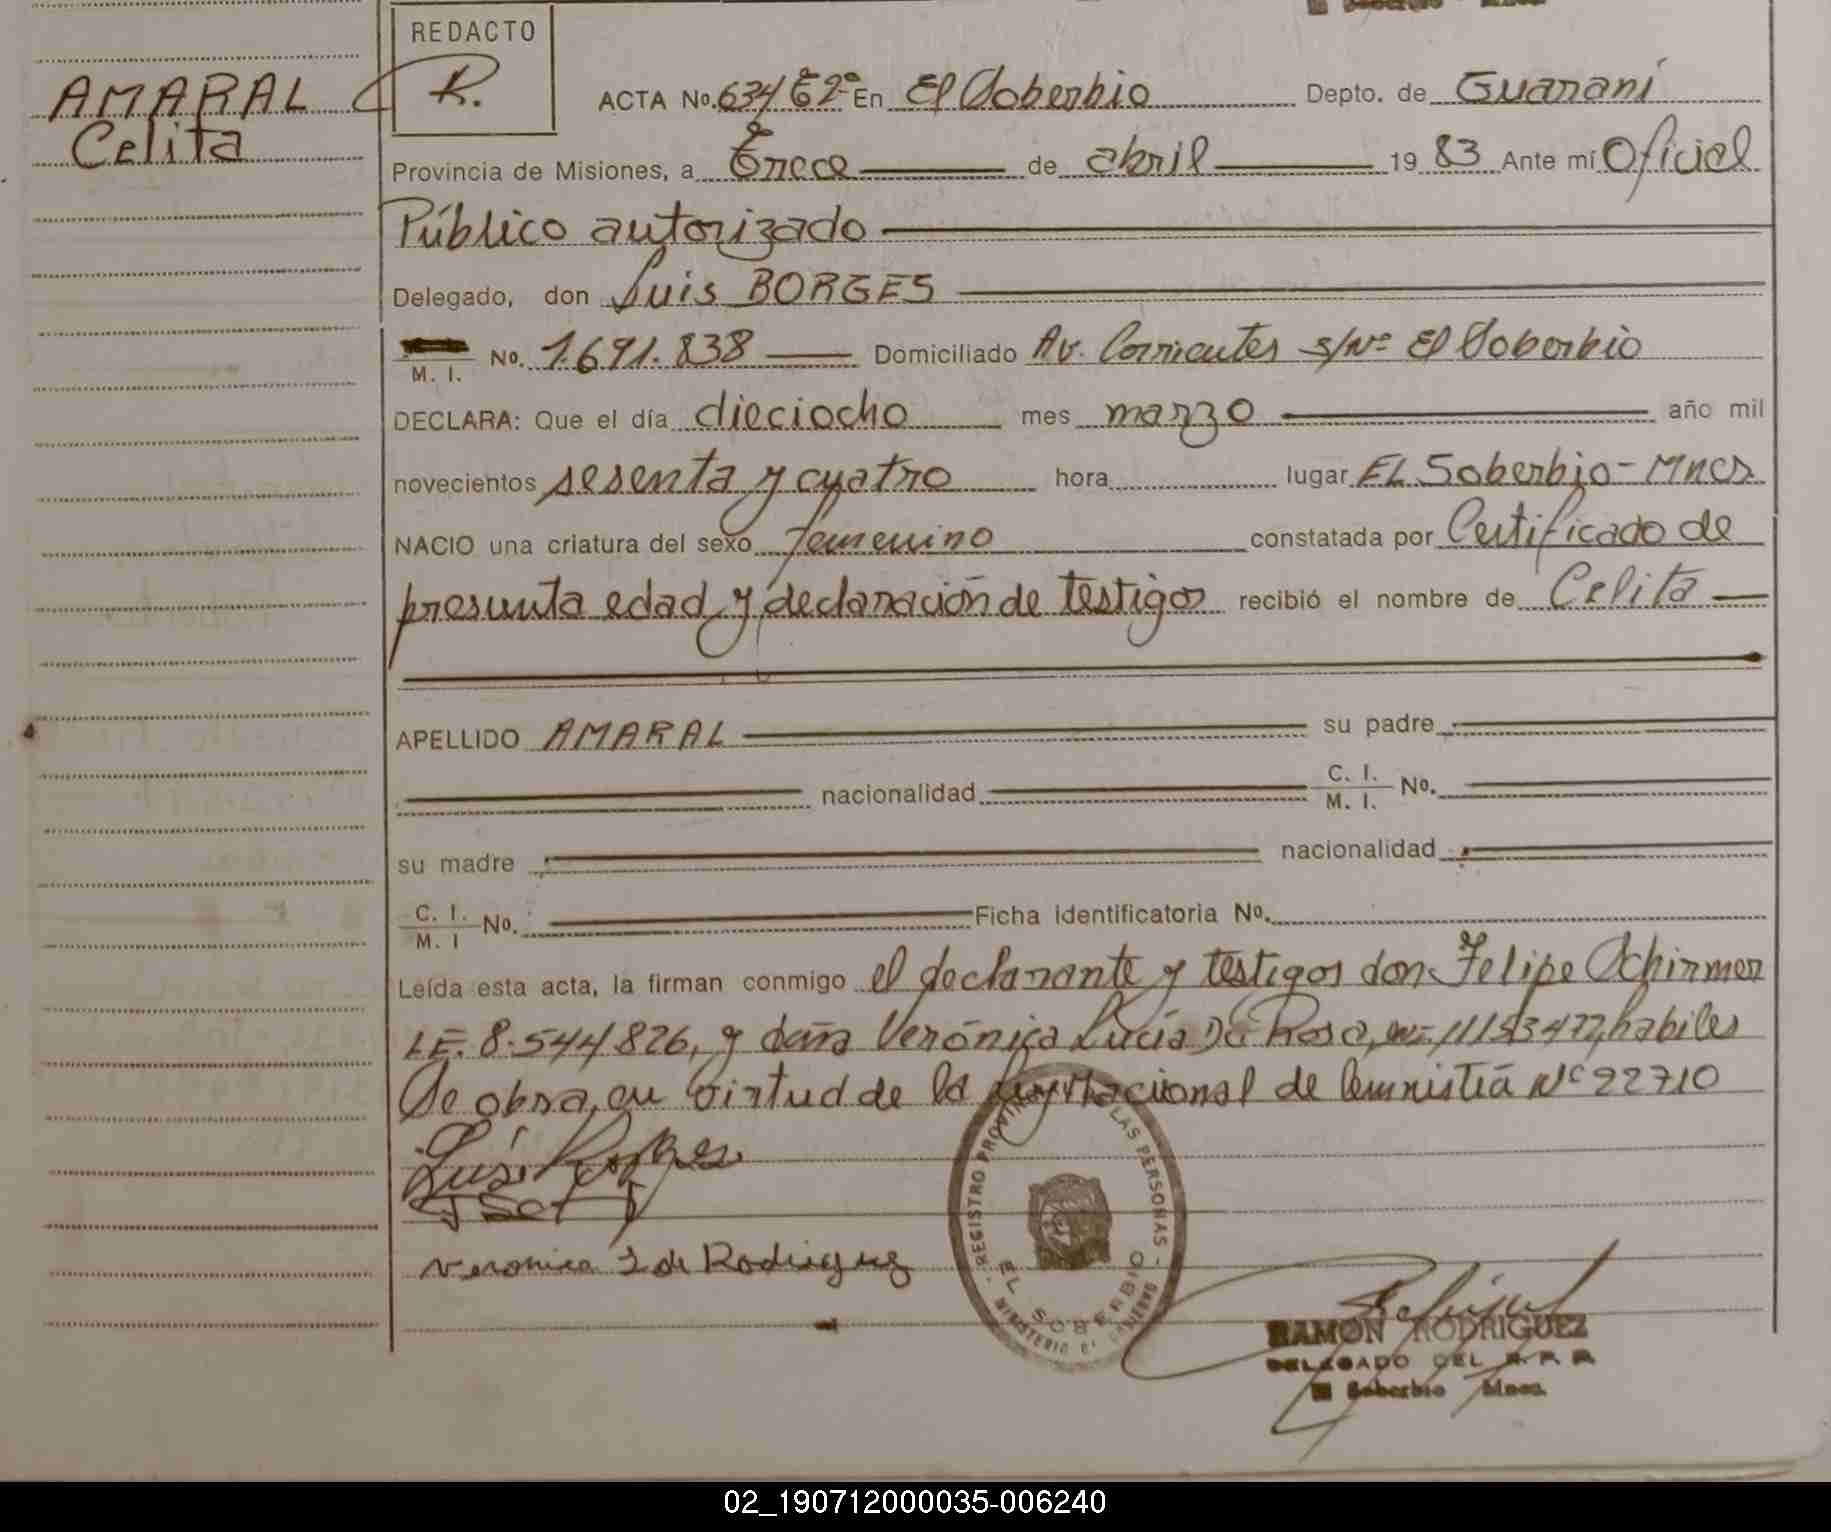 REDACTO
R.
AMARAL
Celita
ACTA No. 634 Eº 2º En El Soberbio Depto. de Guaraní
Provincia de Misiones, a Trece de abril 19 83 Ante mí Oficial
Público autorizado
Delegado, don Luis BORGES
M. I. No. 7.691.838 Domiciliado Av. Corrientes s/Nº El Soberbio
DECLARA: Que el día dieciocho mes marzo año mil
novecientos sesenta y cuatro hora lugar EL Soberbio - Mnes
NACIO una criatura del sexo femenino constatada por Certificado de
presunta edad y declaración de testigos recibió el nombre de Celita
APELLIDO AMARAL su padre
nacionalidad C. I. M. I. No.
su madre nacionalidad
C. I. M. I No. Ficha identificatoria No.
Leída esta acta, la firman conmigo el declarante y testigos don Felipe Schirmer
LE. 8.544826, y doña Verónica Lucía Da Rosa, habiles
Se obra, en virtud de la Ley Nacional de Amnistía Nº 22710
Luis Borges
Veronica L de Rodriguez
REGISTRO PROVIN LAS PERSONAS
EL SOBERBIO
MINISTERIO DE GOBIERNO
RAMON RODRIGUEZ
DELEGADO DEL R. P. P.
El Soberbio Mnes.
02_190712000035-006240